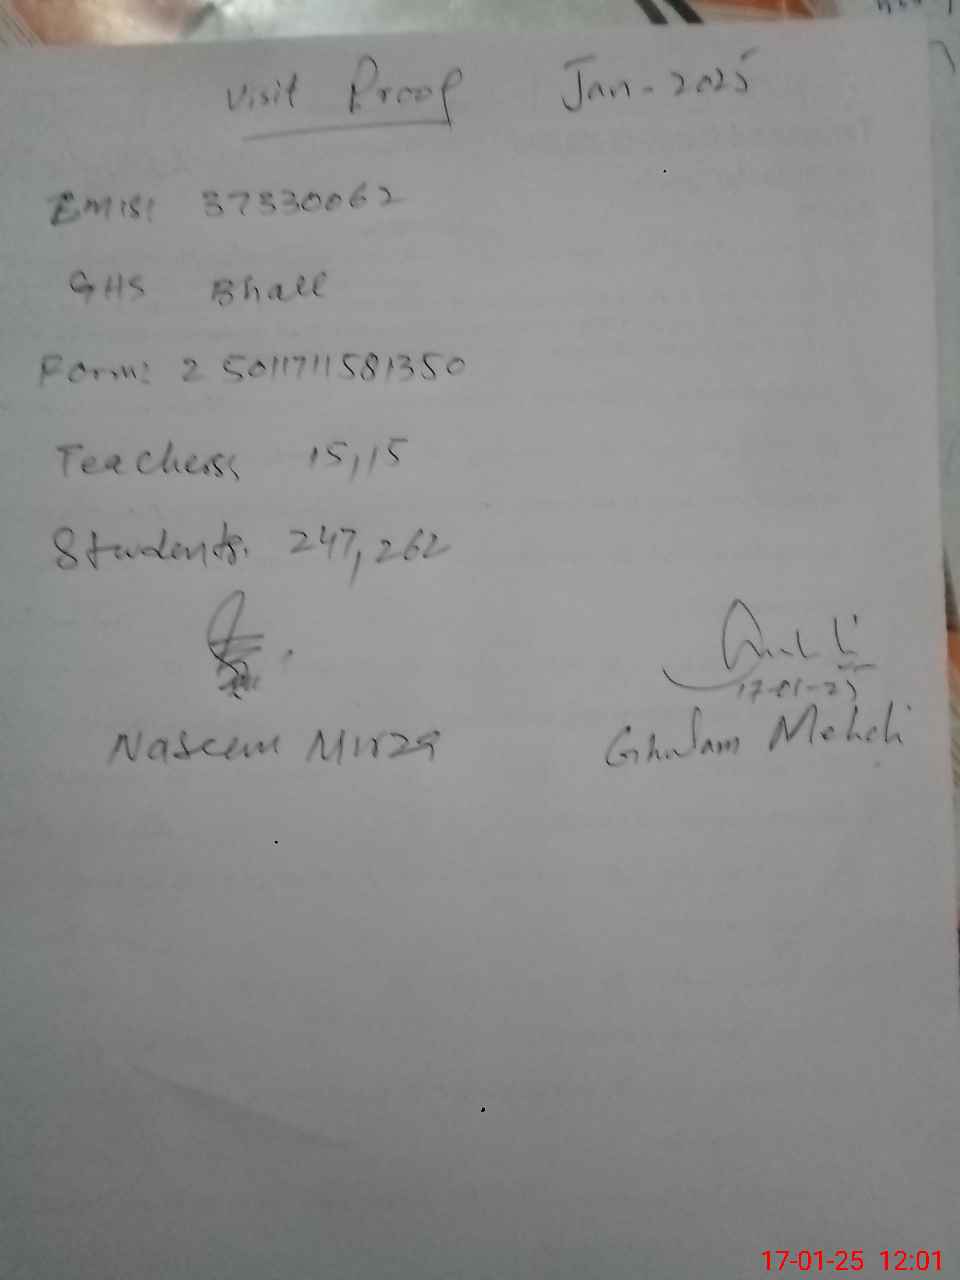 Visit Proof Jan-2025
EMIS: 37330062
GHS Bhall
Form: 2 5011711581350
Teachers: 15,15
Students. 247,262
17-01-25
Naseem Mirza Ghulam Mehdi
17-01-25 12:01